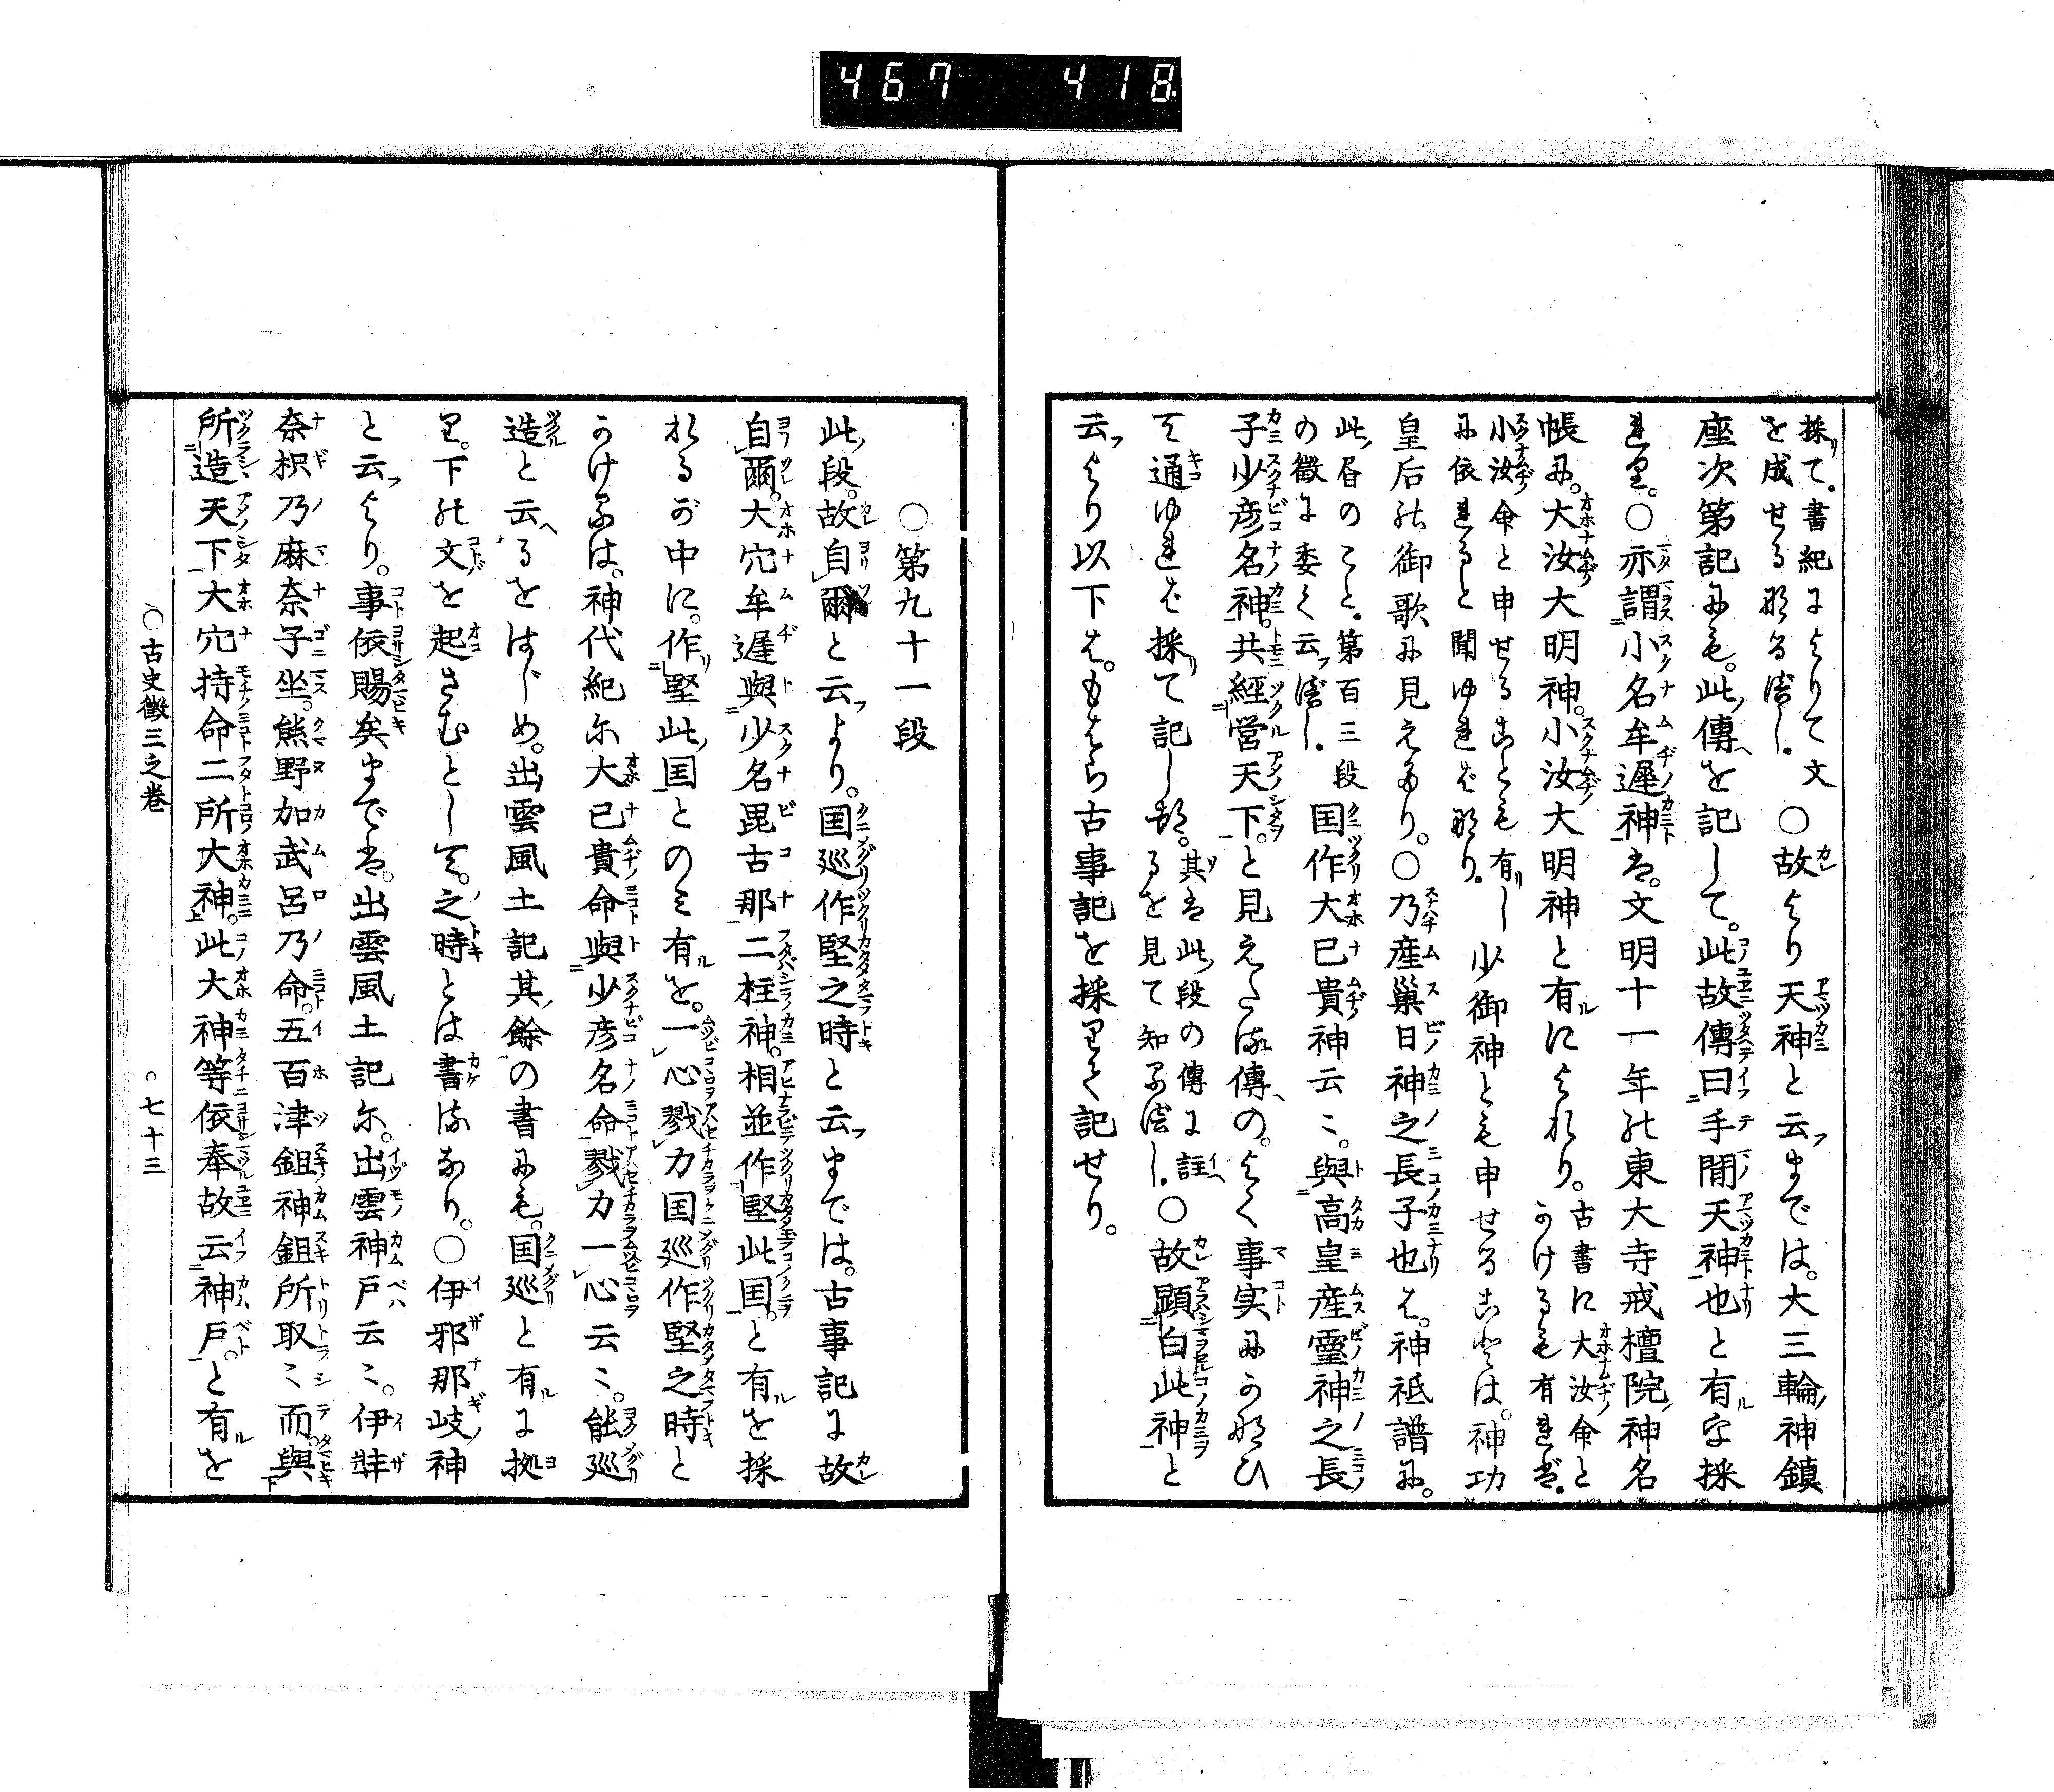 467 418
採て。書紀によりて文
を成せる那る誌し。
○故より天神と云までは。大三輪神鎮
座次第記にも。此傳を記して。此故傳曰手間天神也と有を採
れり。○亦謂小名牟遅神は。文明十一年の東大寺戒檀院神名
帳に。大汝大明神。小汝大明神と有によれり。
古書に大汝命と
小汝命と申せることも有し
かけるも有れば。
少御神とも申せることは。神功
に依れると聞ゆれば那り。
皇后の御歌に見えたり。○乃産巣日神之長子也は。神祇譜に。
此昏のこと。第百三段
の徴に委く云べし。
国作大已貴神云々。與高皇産靈神之長
子少彦名神。共經営天下。と見えたる傳の。よく事実にかなひ
て通ゆれば採て記しつ。
其は此段の傳に註へ
るを見て知るべし。
○故顕白此神と
云より以下は。もはら古事記を採りて記せり。
○第九十一段
此段。故自爾と云より。国巡作堅之時と云までは。古事記に故
自爾。大穴牟遅與少名毘古那二柱神。相並作堅此国。と有を採
れるが中に。作堅此国とのミ有を。一心戮力国巡作堅之時と
かけるは。神代紀に大已貴命與少彦名命戮力一心云々。能巡
造と云へるをはじめ。出雲風土記其餘の書にも。国巡と有に拠
り。下の文を起さむとして。之時とは書るなり。○伊邪那岐神
と云より。事依賜矣までは。出雲風土記に。出雲神戸云々。伊弉
奈枳乃麻奈子坐。熊野加武呂乃命。五百津鉏神鉏所取々而。與
所造天下大穴持命二所大神。此大神等依奉故云神戸。と有を
○古史徴三之巻 ○七十三